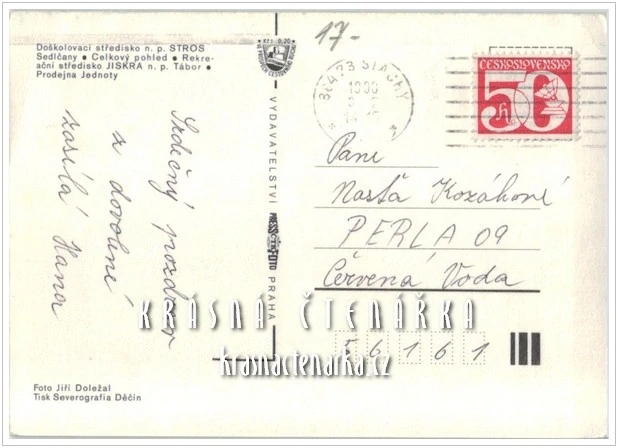 Doškolovací středisko n. p. STROS
Sedlčany • Celkový pohled • Rekre-
ační středisko JISKRA n. p. Tábor •
Prodejna Jednoty
Srdečný pozdrav
z dovolené
zasílá Hana
Foto Jiří Doležal
Tisk Severografia Děčín
VYDAVATELSTVÍ PRESSFOTO PRAHA
17-
STACHY
ČESKOSLOVENSKO
50 h
Paní
Nasťa Kozáková
PERLA 09
Červená Voda
56161
KRÁSNÁ ČTENÁŘKA
krasnactenarka.cz